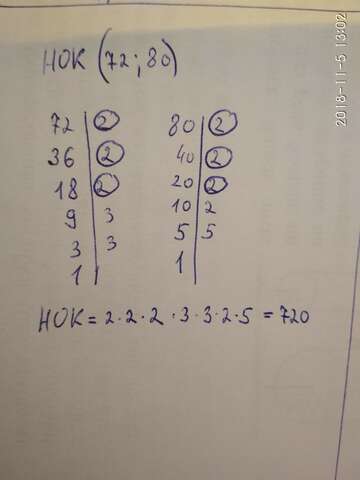 НОК (72; 80)
72 | 2 80 | 2
36 | 2 40 | 2
18 | 2 20 | 2
9 | 3 10 | 2
3 | 3 5 | 5
1 | 1 |
НОК = 2·2·2·3·3·2·5 = 720
2018-11-5 13:02